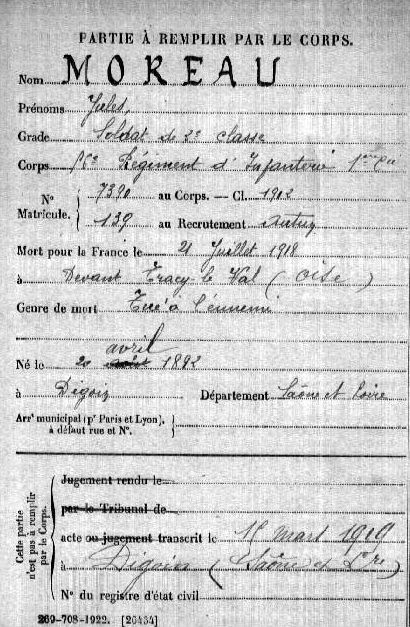 PARTIE À REMPLIR PAR LE CORPS.
Nom MOREAU
Prénoms Jules
Grade Soldat de 2e classe
Corps Régiment d'Infanterie
N° Matricule. 7390 au Corps. — Cl. 1902
139 au Recrutement Autun
Mort pour la France le 21 Juillet 1918
à Devant Tracy le Val (Oise)
Genre de mort Tué à l'ennemi
avril
Né le 20 août 1892
à Digoin Département Saône et Loire
Arrt municipal (pr Paris et Lyon),
à défaut rue et N°.
Cette partie n'est pas à remplir par le Corps.
Jugement rendu le
par le Tribunal de
acte ou jugement transcrit le mars 1919
à Digoin (Saône et Lre)
N° du registre d'état civil
269-708-1922. [26434]